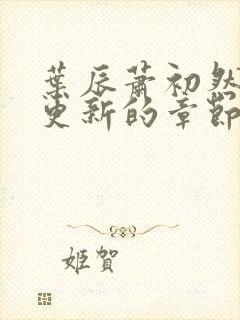 葉辰蕭初然
更新的章節
姬賀